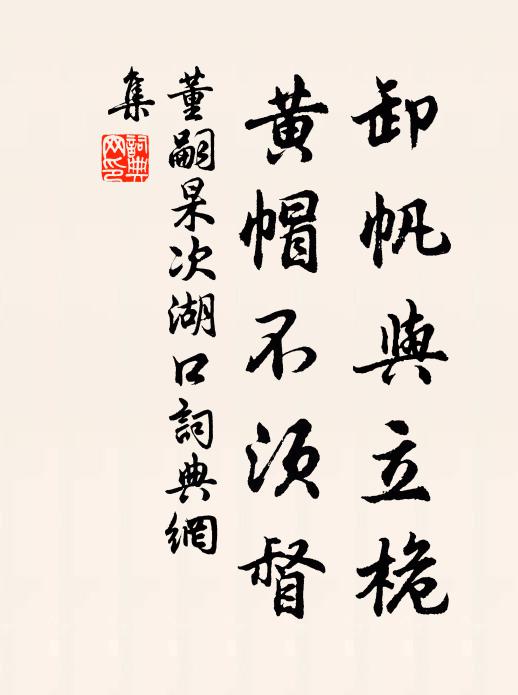 卸帆與立桅
黃帽不須督
董嗣杲次湖口詞典網
集
詞典網印